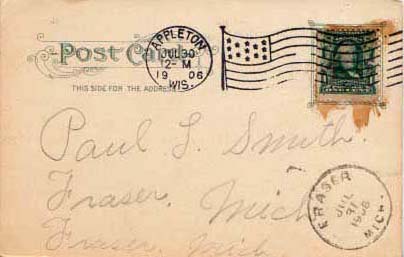 Post Card
THIS SIDE FOR THE ADDRESS
APPLETON
JUL 30
12-M
1906
WIS.
Paul L. Smith.
Fraser, Mich
Fraser, Mich.
FRASER
JUL
31
1906
MICH.